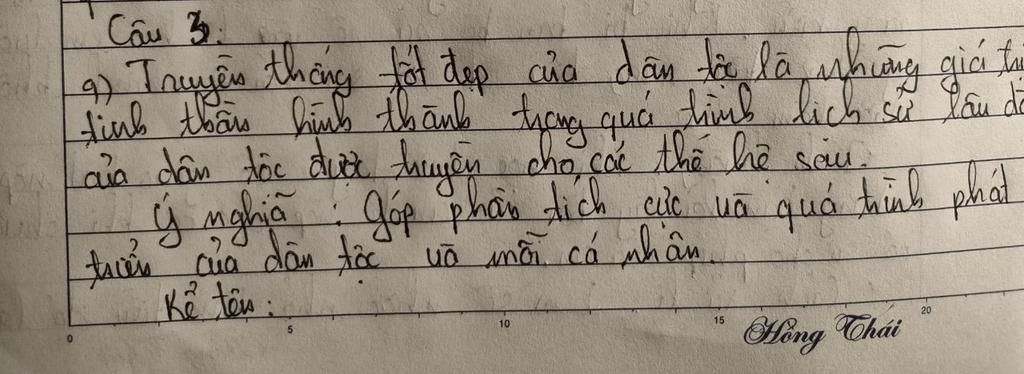 Câu 3.
a) Truyền thống tốt đẹp của dân tộc là những giá trị
tinh thần hình thành trong quá trình lịch sử lâu
của dân tộc được truyền cho các thế hệ sau.
Ý nghĩa : góp phần tích cực và quá trình phát
triển của dân tộc và mỗi cá nhân.
Kể tên :
0 5 10 15 20
Hồng Thái